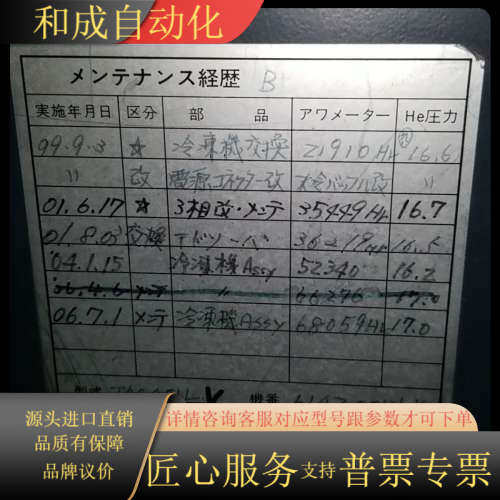 和成自动化
メンテナンス経歴 B
実施年月日 区分 部 品 アワメーター He圧力
99.9.3 ☆ 冷凍機交換 21910Hr 16.6
〃 改 電源コネクター改
01.6.17 ☆ 3相改・メンテ 35449Hr 16.7
01.8.03 交換 アドソーバ 36219Hr 16.5
'04.1.15 冷凍機Assy 52340 16.2
06.4.6 メンテ 〃 66276 17.0
06.7.1 メンテ 冷凍機Assy 68059Hr 17.0
机番
源头进口直销
品质有保障
品牌议价
详情咨询客服对应型号跟参数才可下单
匠心服务 支持 普票专票